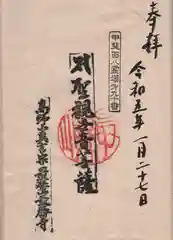 奉拝
令和五年一月二十七日
甲斐百八霊場第九十番
聖観世音菩薩
高野山真言宗